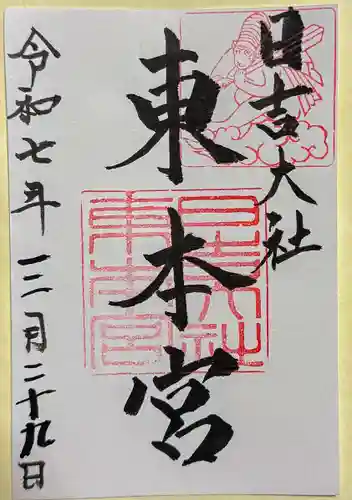 日吉大社
東本宮
令和七年一二月二十九日
日吉大社
東本宮